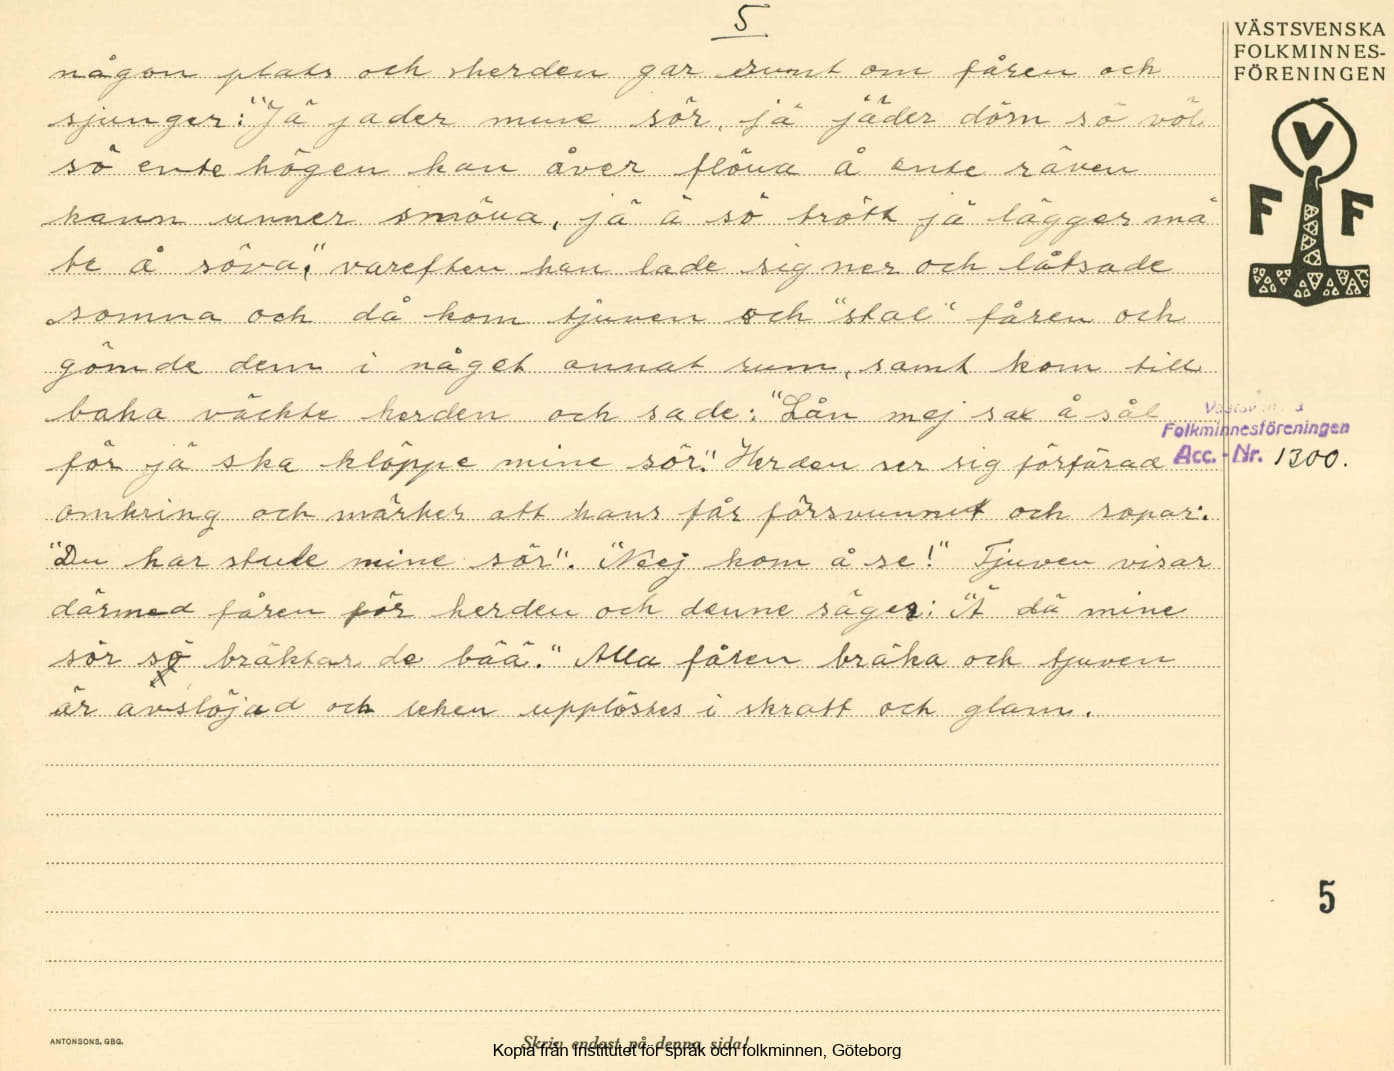 5
VÄSTSVENSKA
FOLKMINNES-
FÖRENINGEN
V
F F
någon plats och herden går runt om fåren och
sjunger: "Jä jäder mine sör, jä jäder dörn sö völ
sö ente högen kan åver flöua å ente räven
kann unner smöua, jä ä sö trött jä lägger mä
te å söva", varefter han lade sig ner och låtsade
somna och då kom tjuven och "stal" fåren och
gömde dem i något annat rum, samt kom till
baka väckte herden och sade: "Lån mej sax å sål
för jä ska klöppe mine sör". Herden ser sig förfärad
omkring och märker att hans får försvunnit och ropar:
"Du har stule mine sör". "Neej kom å se!" Tjuven visar
därmed fåren för herden och denne säger: "Ä dä mine
sör sö bräktar de bää." Alla fåren bräka och tjuven
är avslöjad och leken upplöstes i skratt och glam.
Västsvenska
Folkminnesföreningen
Acc. - Nr. 1300.
5
ANTONSONS, GBG.
Skriv endast på denna sida!
Kopia från Institutet för språk och folkminnen, Göteborg